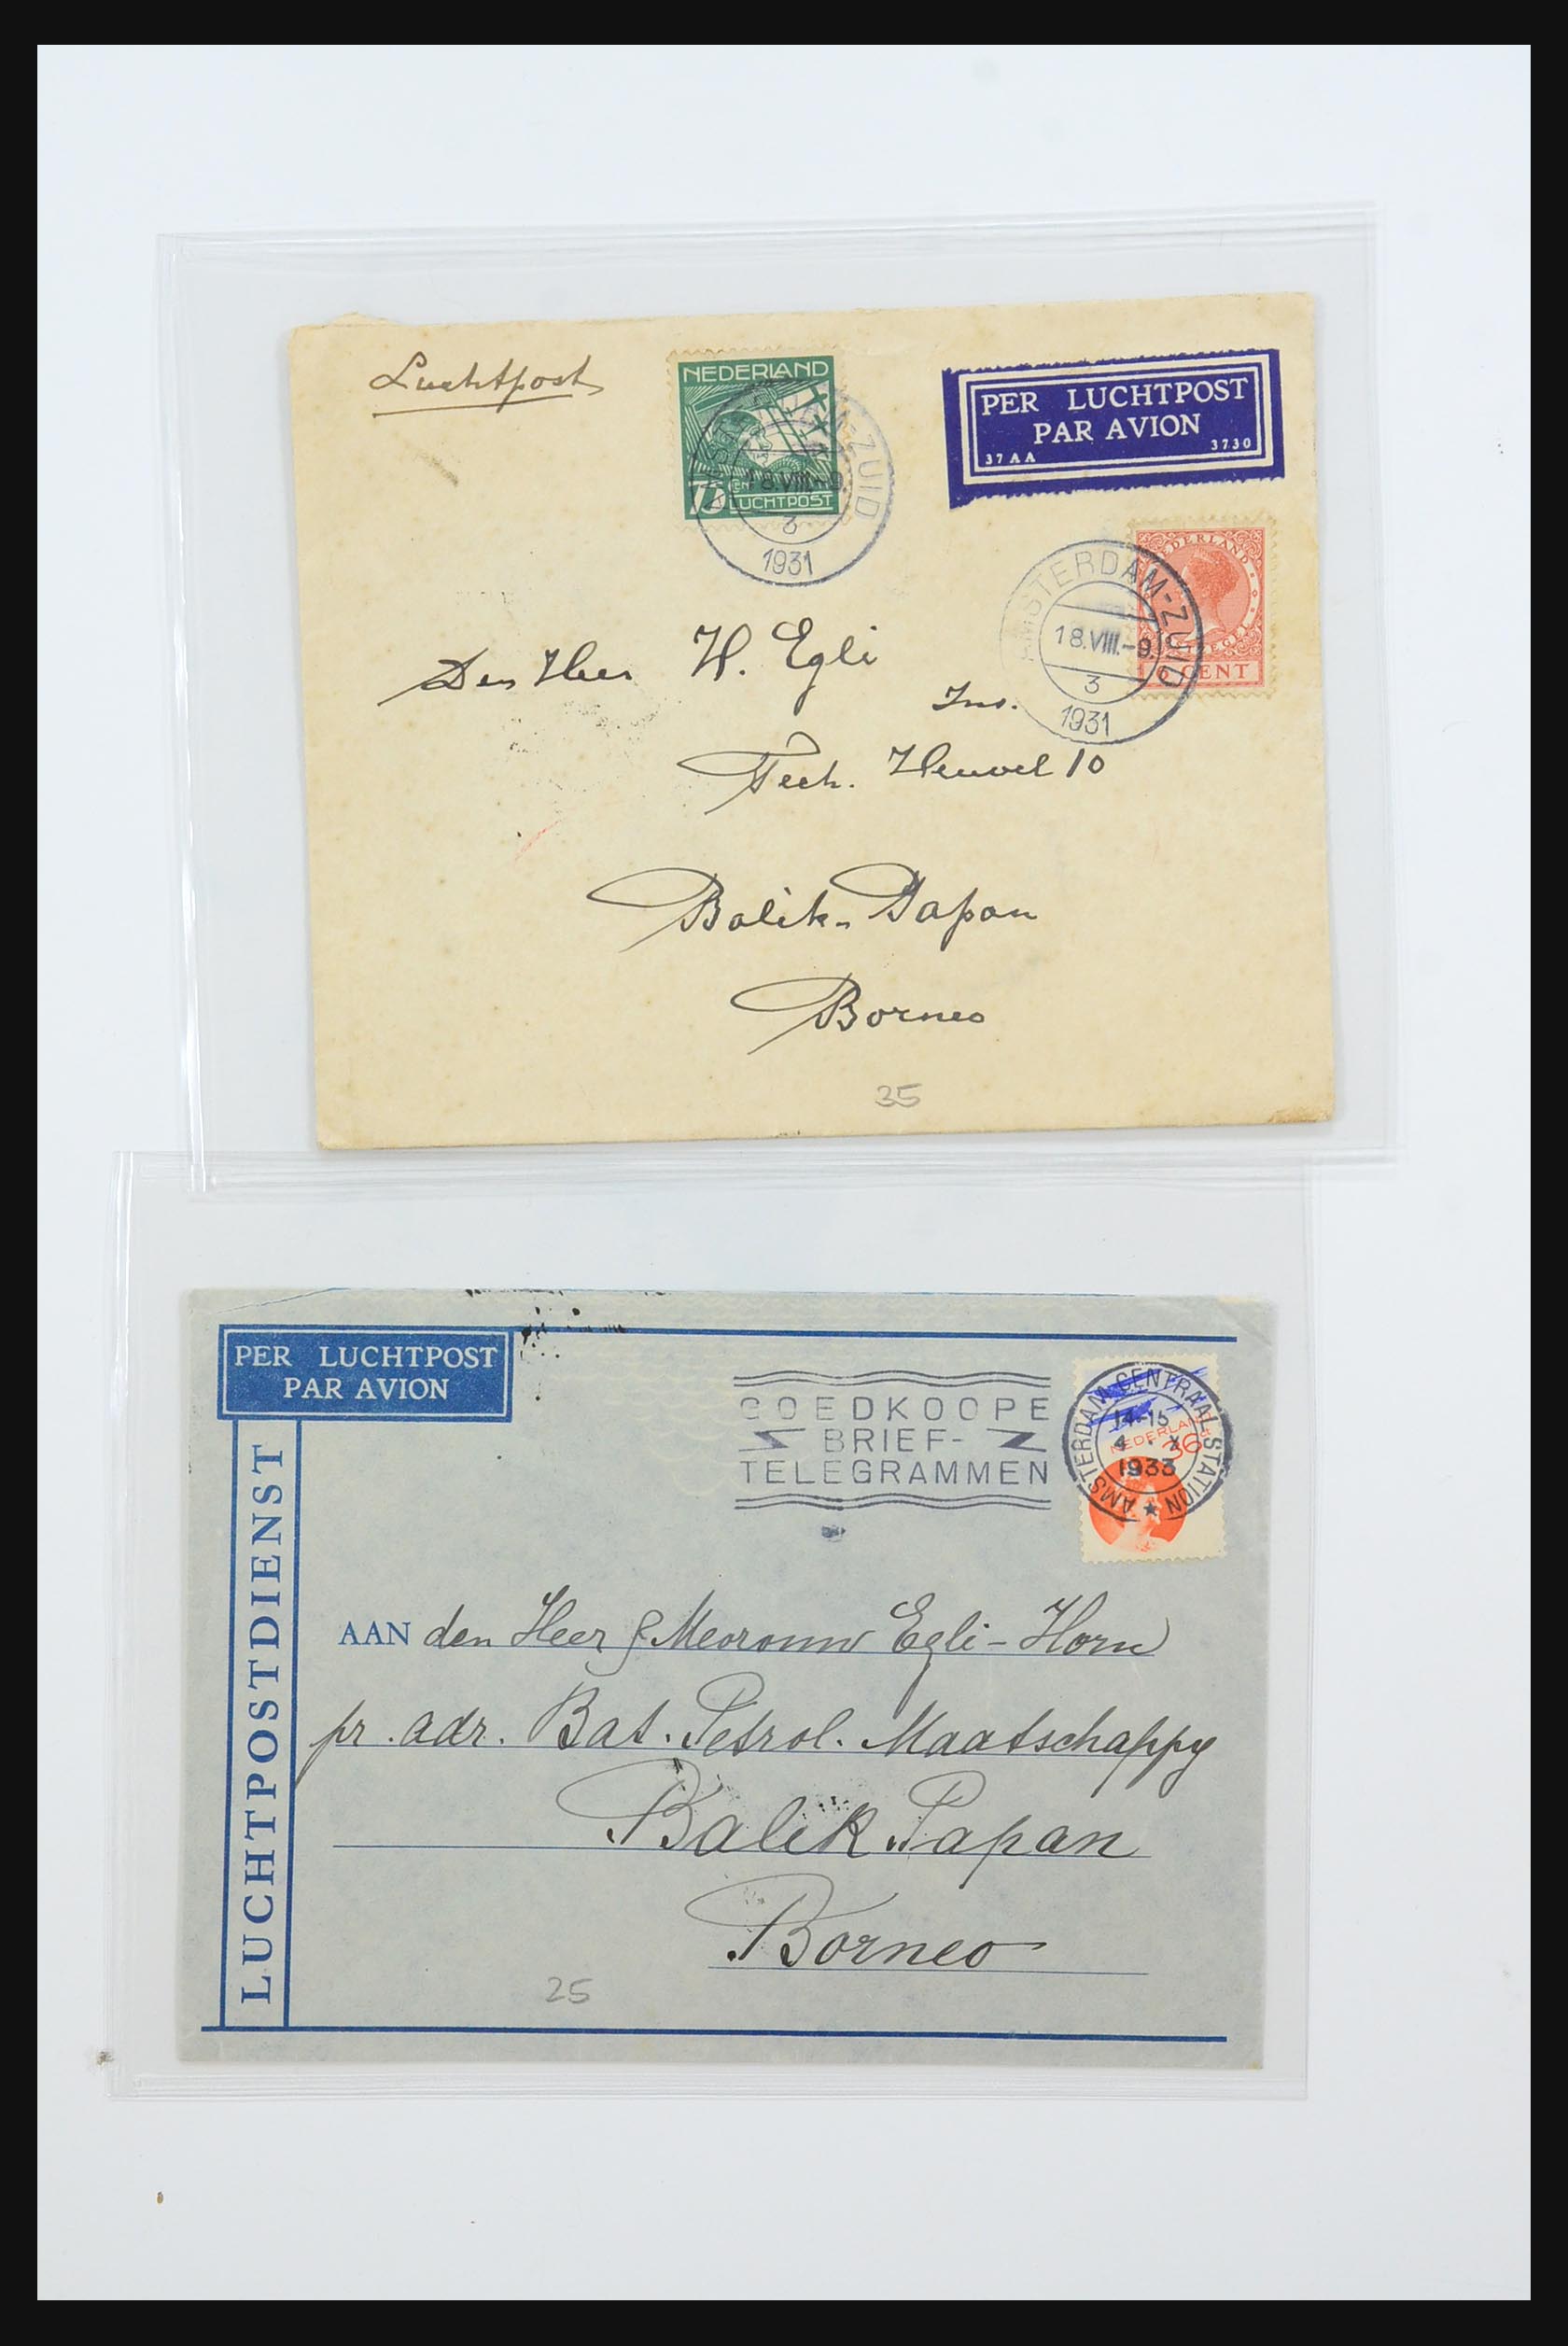 Luchtpost
NEDERLAND
75 CENT
LUCHTPOST
18.VIII.-9.
3
1931
PER LUCHTPOST
PAR AVION
37AA 3730
NEDERLAND
6 CENT
AMSTERDAM-ZUID
18.VIII.-9.
3
1931
Den Heer H. Egli
Ins.
Tech. Heuvel 10
Balik-Papan
Borneo
35
PER LUCHTPOST
PAR AVION
LUCHTPOSTDIENST
GOEDKOOPE
BRIEF-
TELEGRAMMEN
AMSTERDAM CENTRAAL STATION
14-15
4 . X
1933
NEDERLAND
36
AAN den Heer & Mevrouw Egli-Horn
pr. adr. Bat. Petrol. Maatschappy
Balik Papan
Borneo
25